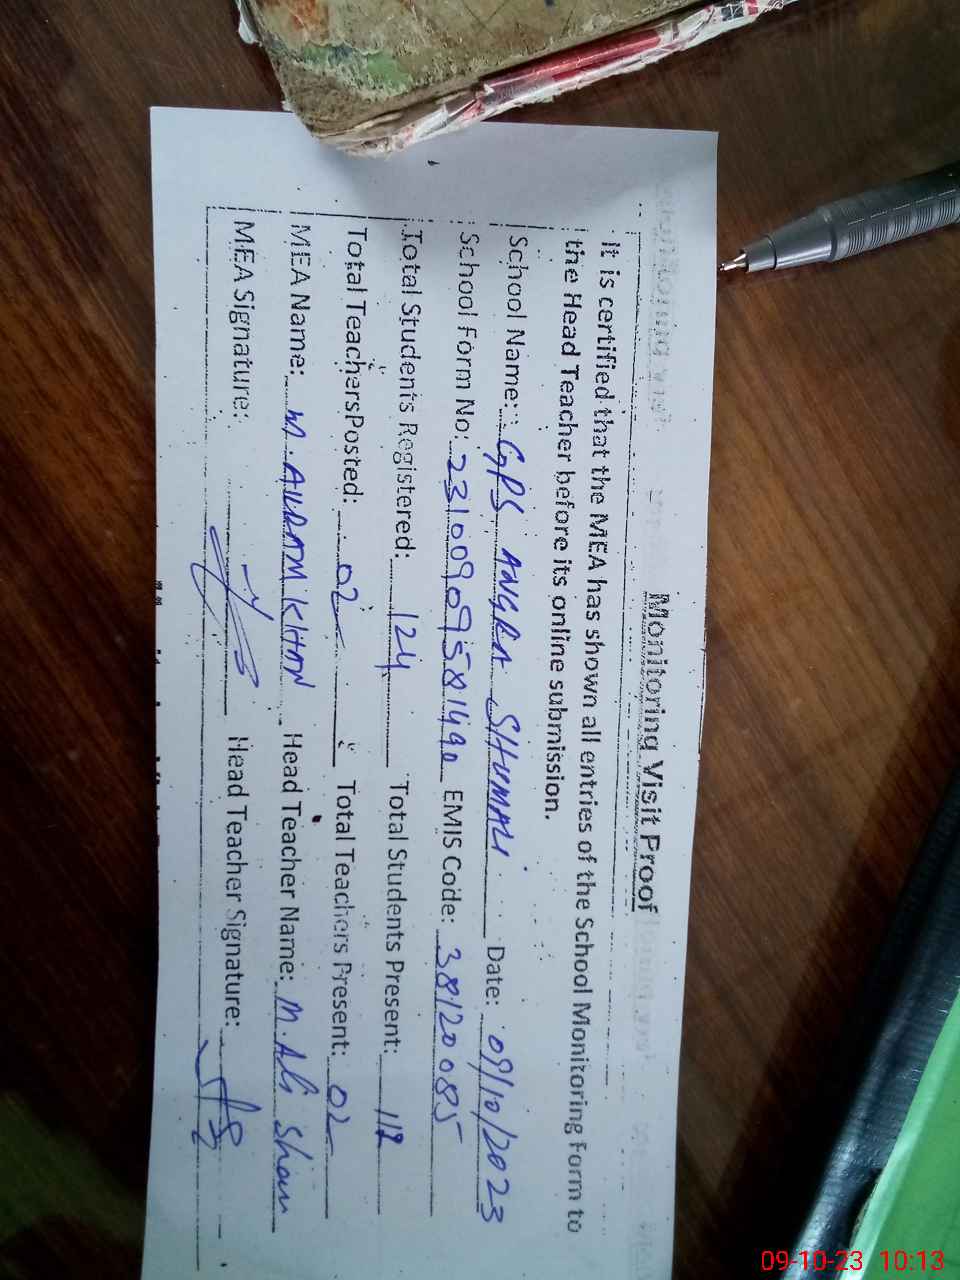 Monitoring Visit Proof
It is certified that the MEA has shown all entries of the School Monitoring Form to
the Head Teacher before its online submission.
School Name: GPS ANGRA SHUMALI Date: 09/10/2023
School Form No: 23100909581490 EMIS Code: 38120085
Total Students Registered: 124 Total Students Present: 112
Total Teachers Posted: 02 Total Teachers Present: 02
MEA Name: M. AKRAM KHAN Head Teacher Name: M. Ali Shan
MEA Signature: Head Teacher Signature:
09-10-23 10:13